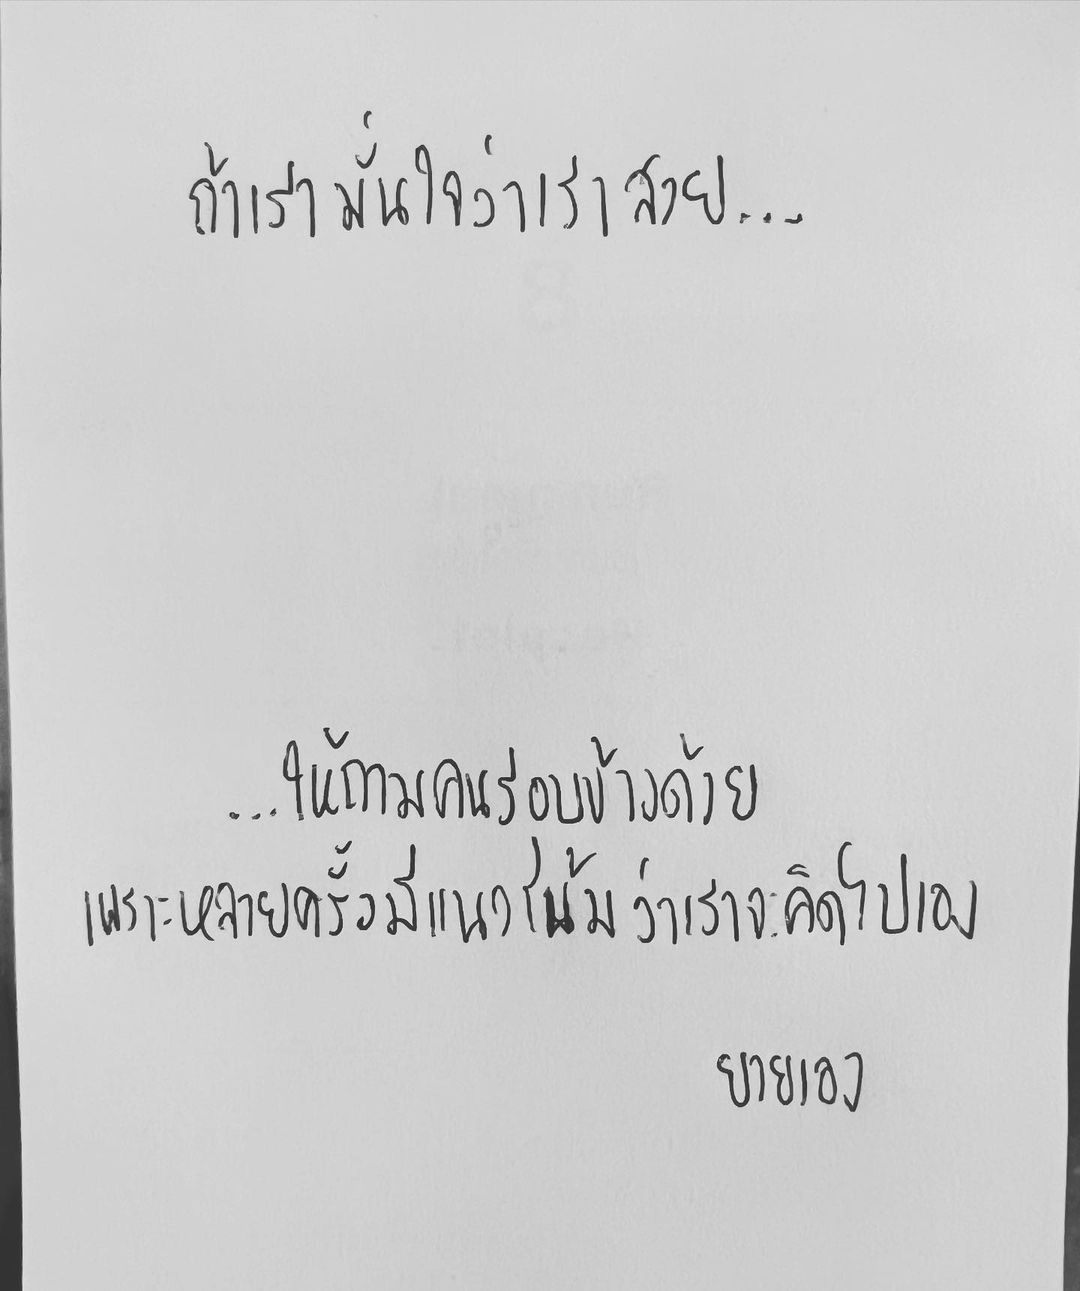 ถ้าเรามั่นใจว่าเราสวย...
...ให้ถามคนรอบข้างด้วย
เพราะหลายครั้งมีแนวโน้มว่าเราจะคิดไปเอง
ยายเอง